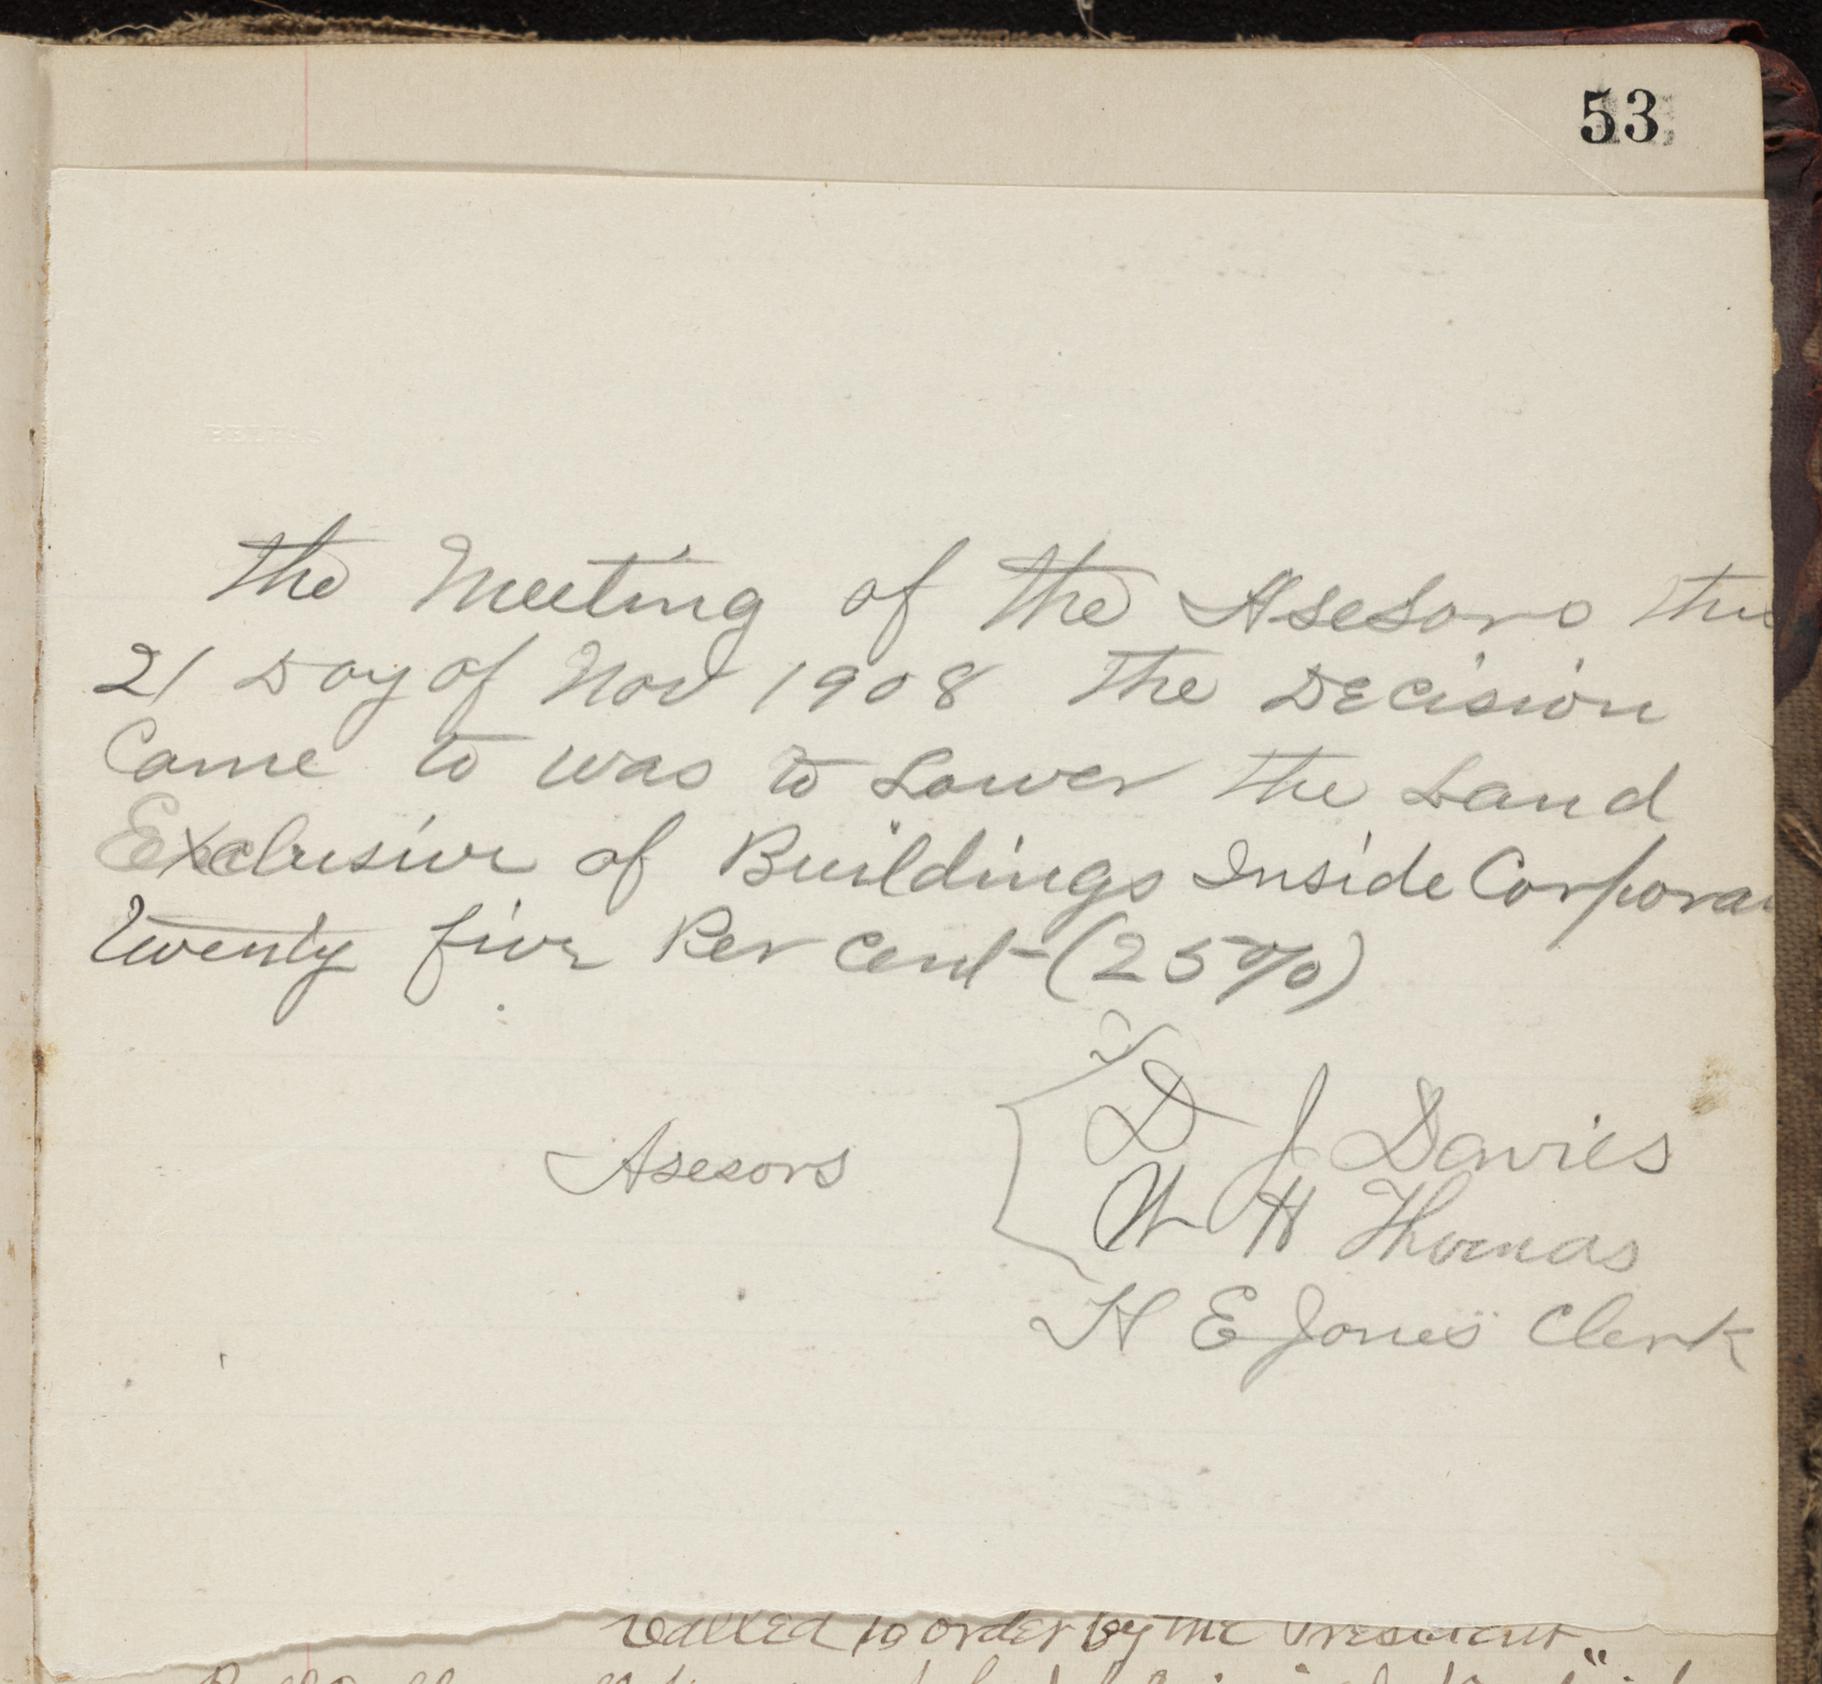 53
the Meeting of the Asesors the
21 Day of Nov 1908 The Decision
Came to was to Lower the Land
Exclusive of Buildings Inside Corpora
Twenty five Per Cent (25%)
D J Davies
Asesors
W H Thomas
H E Jones Clerk
Called to order by the President